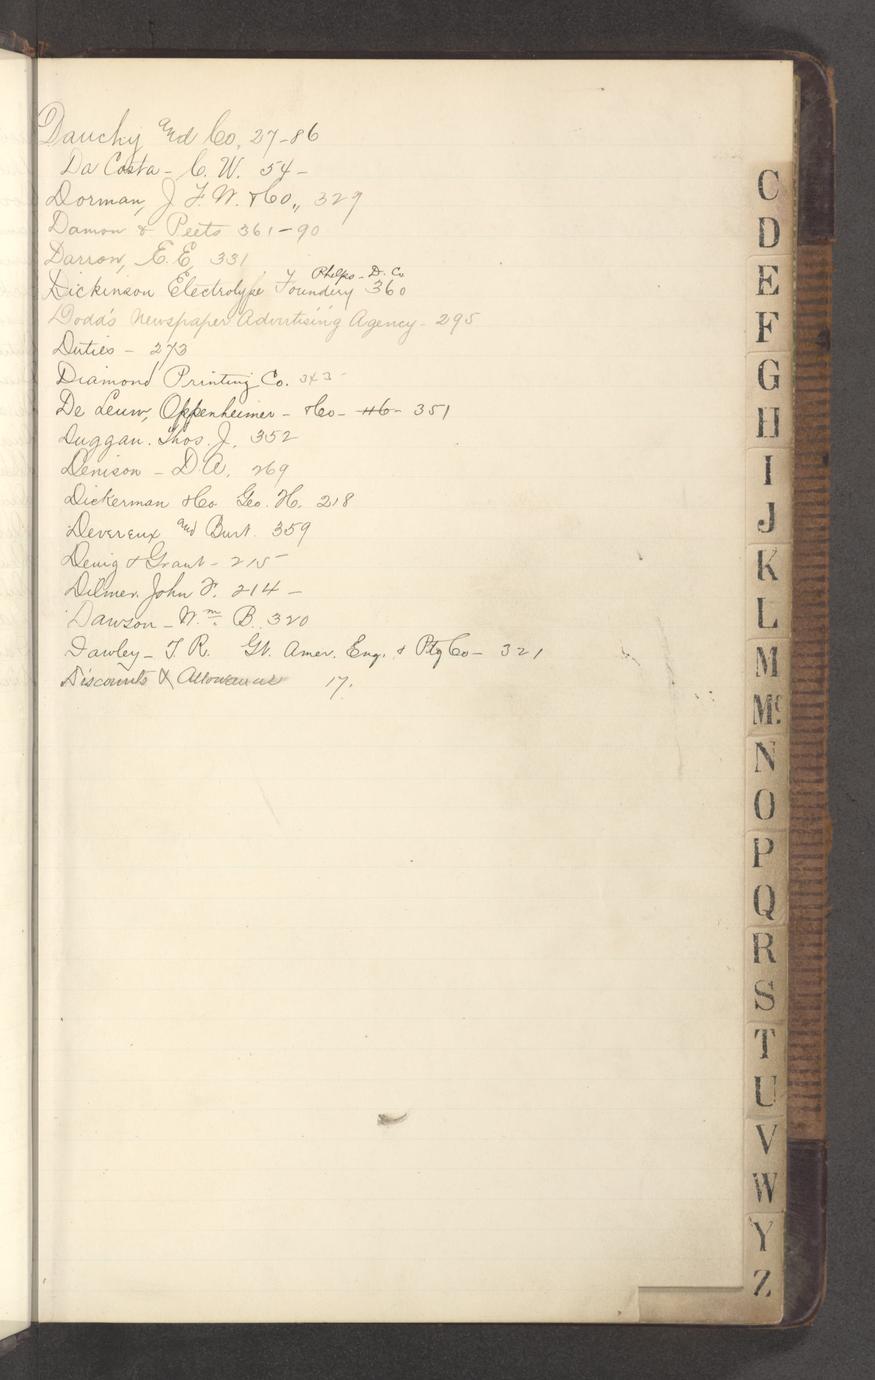 Dauchy and Co, 27-86
Da Costa - C. W. 54 -
Dorman, J. F. W. & Co., 329
Damon & Peets 361-90
Darron, E. E. 331
Phelps - D. Co
Dickinson Electrolype Foundery 360
Dodd's Newspaper Advertising Agency - 295
Duties - 273
Diamond Printing Co. 343 -
De Leuw, Oppenheimer - & Co - 116 - 351
Duggan. Thos. J. 352
Denison - D. A. 269
Dickerman & Co Geo. H. 218
Devereux and Burt. 359
Denig & Grant - 215 -
Dilmer. John F. 214 -
Dawson - Wm. B. 320
Dawley - T. R. Gt. Amer. Eng. & Ptg Co - 321
Discounts & Allowances 17.
C
D
E
F
G
H
I
J
K
L
M
Mc.
N
O
P
Q
R
S
T
U
V
W
Y
Z